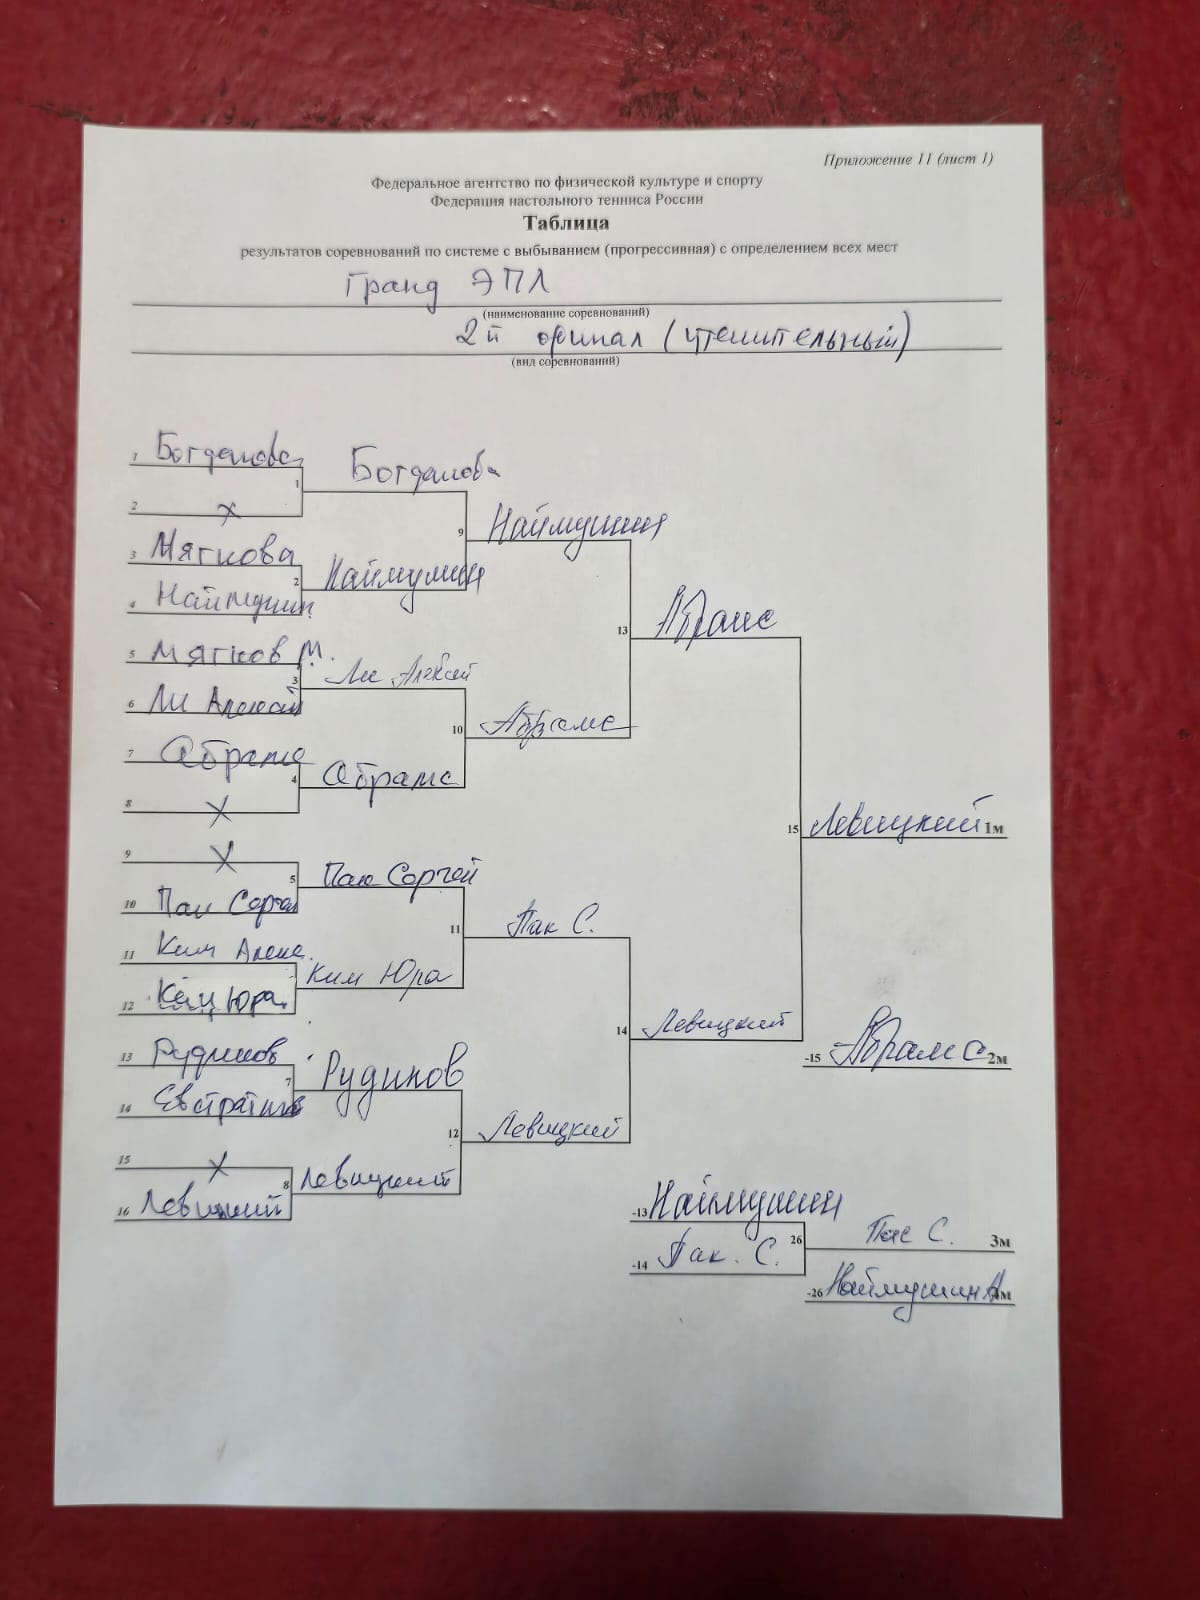 Приложение 11 (лист 1)
Федеральное агентство по физической культуре и спорту
Федерация настольного тенниса России
Таблица
результатов соревнований по системе с выбыванием (прогрессивная) с определением всех мест
Гранд ЭПЛ
(наименование соревнований)
2й финал (утешительный)
(вид соревнований)
1 Богданова
1
Богданова
2 X
9
Наймушин
3 Мягкова
2
Наймушин
4 Наймушин
13
Абрамс
5 Мягков М.
3
Ли Алексей
6 Ли Алексей
10
Абрамс
7 Абрамс
4
Абрамс
8 X
15
Левицкий 1м
9 X
5
Пак Сергей
10 Пак Сергей
11
Пак С.
11 Ким Алекс.
Ким Юра
12 Ким Юра
14
Левицкий
-15 Абрамс 2м
13 Рудиков
7
Рудиков
14 Евстратов
12
Левицкий
15 X
8
Левицкий
16 Левицкий
-13 Наймушин
26
Пак С. 3м
-14 Пак. С.
-26 Наймушин 4м